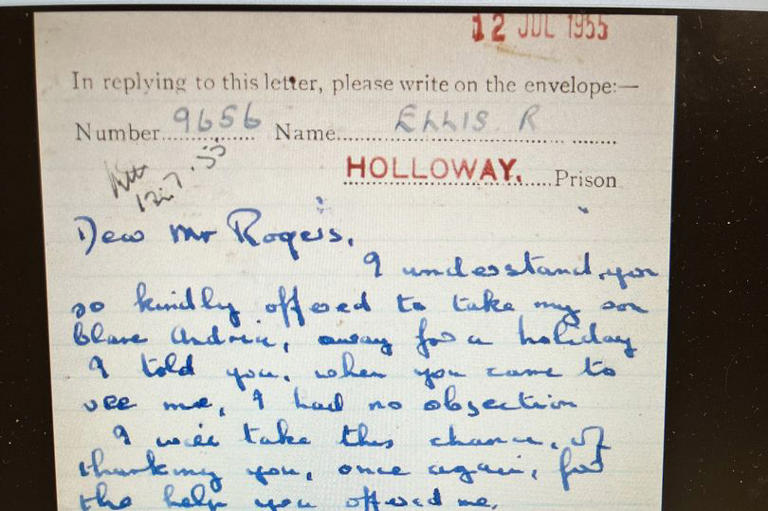 12 JUL 1955
In replying to this letter, please write on the envelope:—
Number 9656 Name ELLIS R
12.7.55
HOLLOWAY. Prison
Dear Mr Rogers,
I understand, you
so kindly offered to take my son
Andria, away for a holiday
I told you, when you came to
see me, I had no obsection
I will take this chance, of
thanking you, once again, for
the help you offered me,